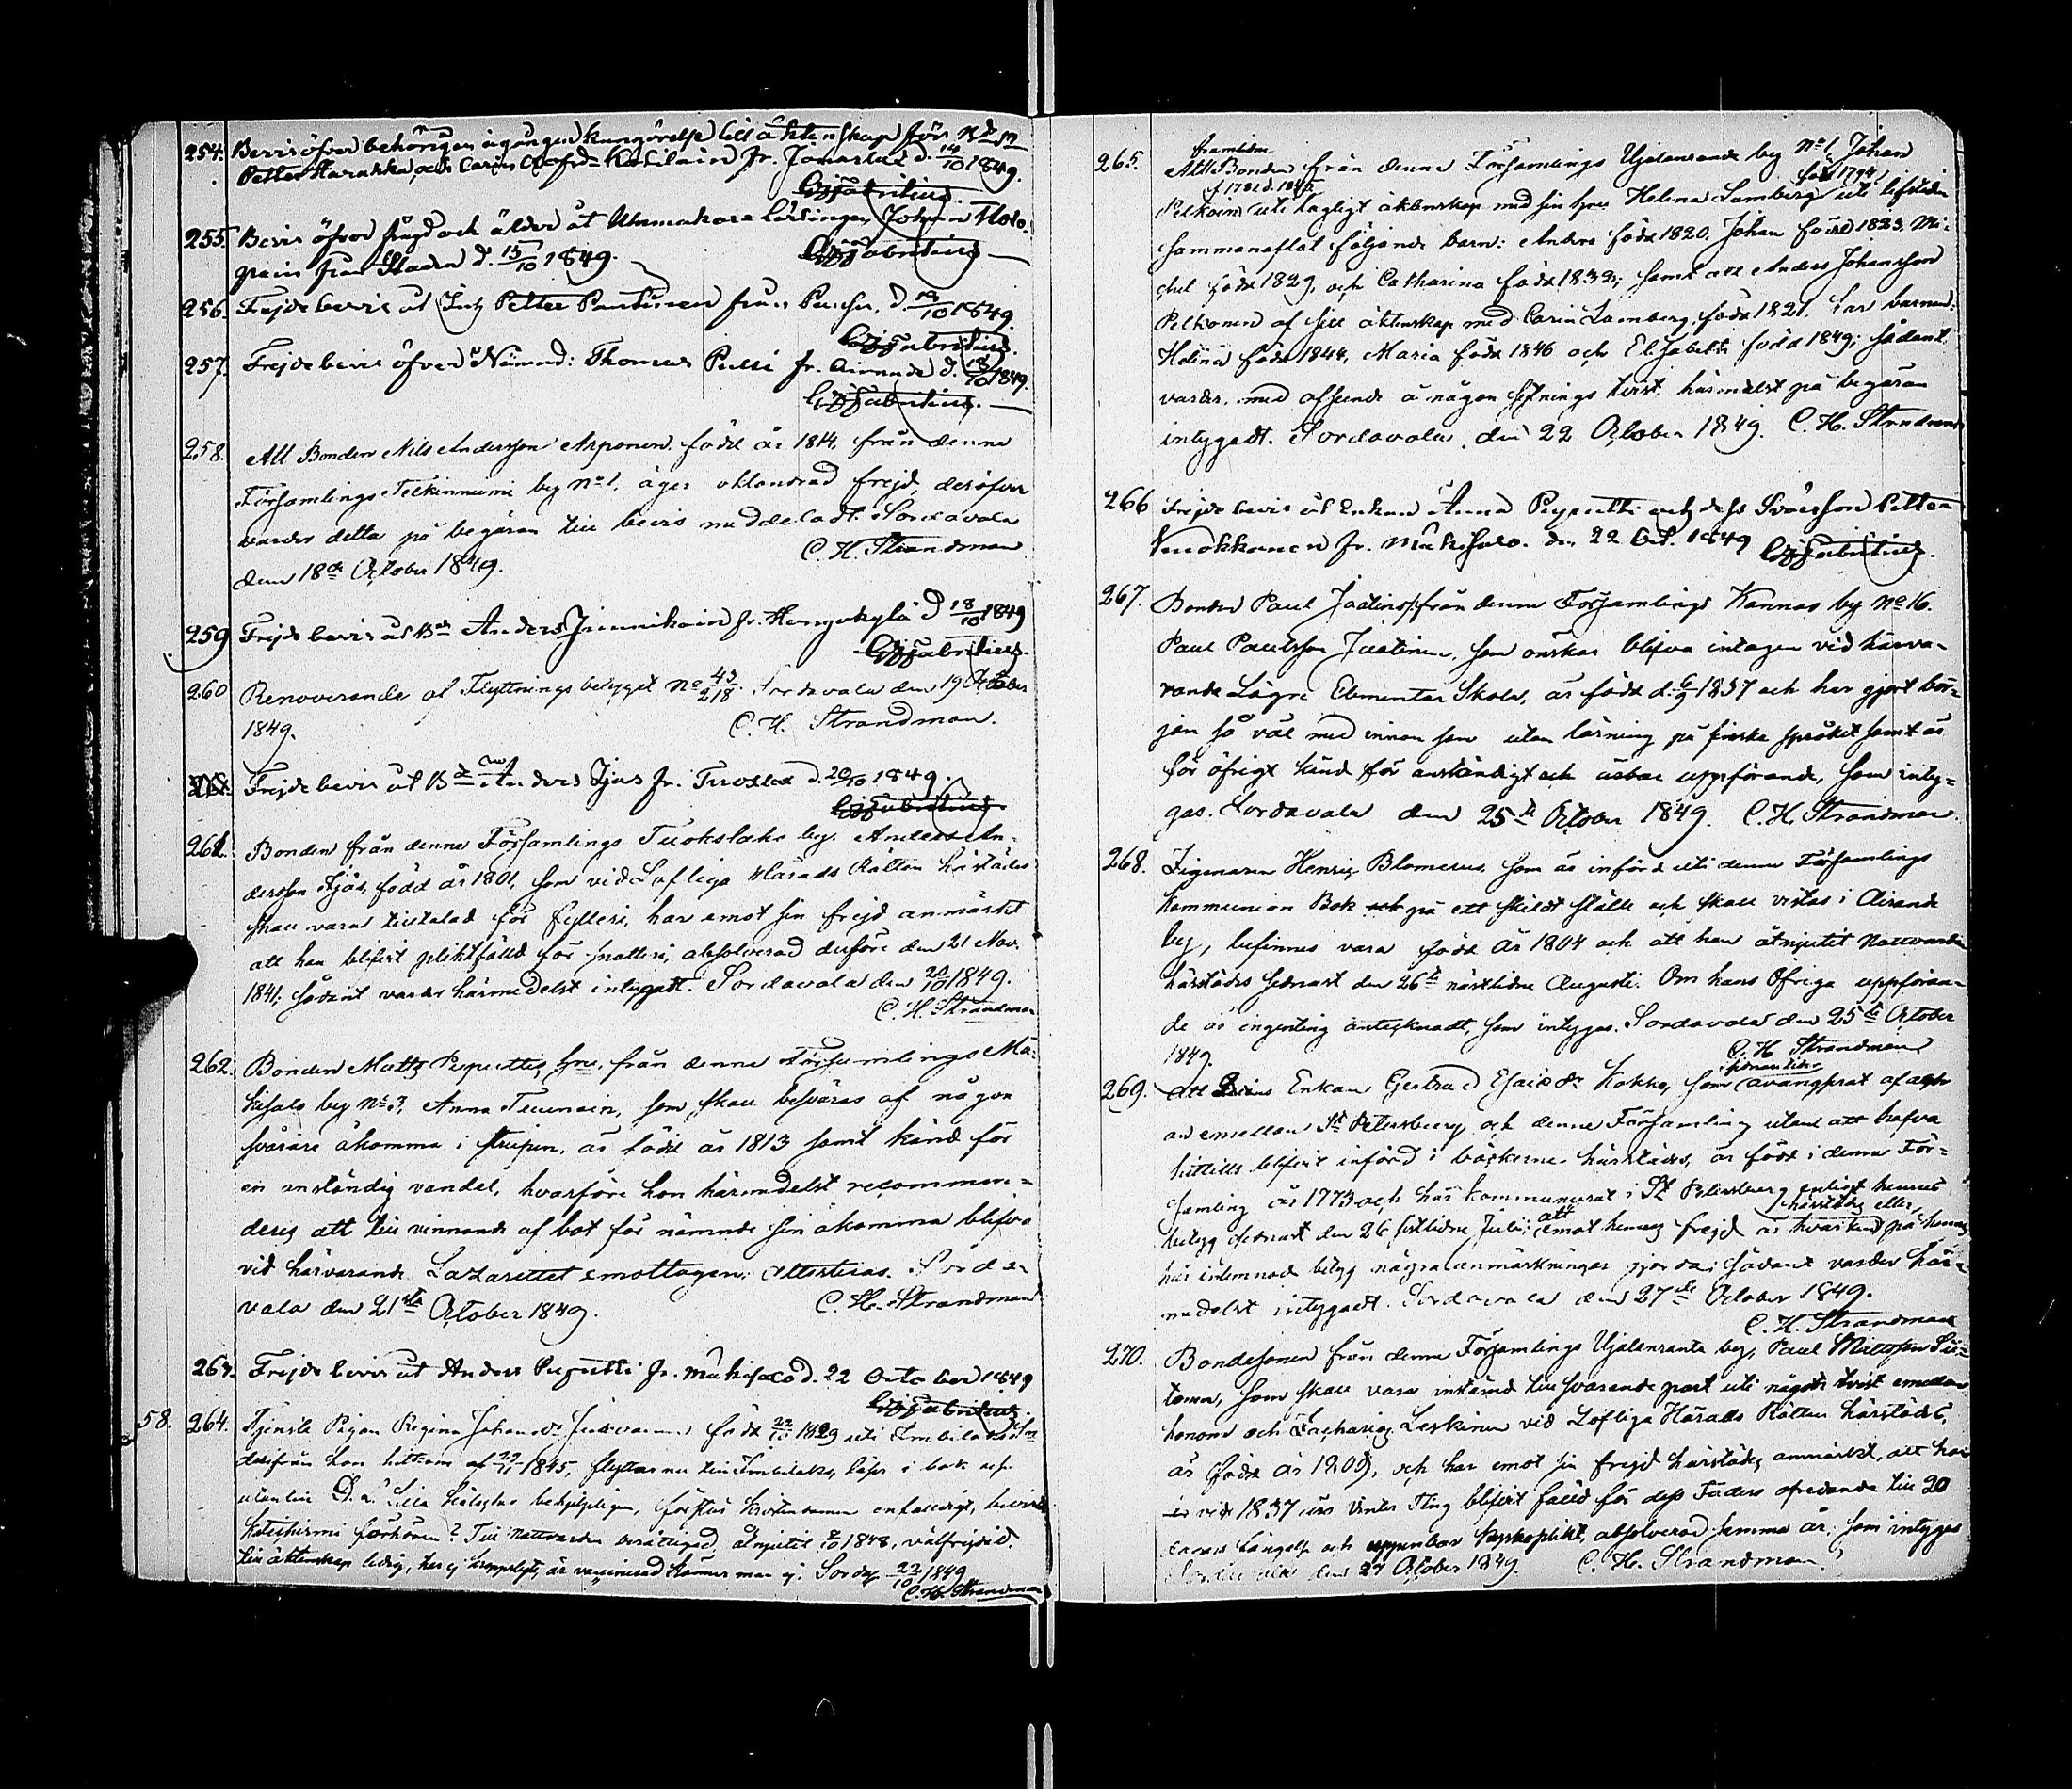 254. Bevis öfver behörigen ågången kungörelse till äktenskap för
Petter Karakka och Carin Kasilain fr. d. 14/10 1849.
255. Bevis öfver frägd och ålder åt Urmakare Lärlingen Johan Molo-
grain från Staden d. 15/10 1849.
256. Frejdebevis åt Petter från d. 1849.
257. Frejdebevis öfver Nämnd: Thomas Pulli fr. d. 18/10 1849.
258. Att Bonden Nils Andersson Arponen född år 1814, från denna
Församlings by No 1, äger oklandrad frejd, deröfver
varder detta på begäran till bevis meddeladt. Sordavala
den 18de October 1849. C. H. Strandman
259 Frejdebevis åt Anders fr. d. 18/10 1849
260 Renoverande af Flyttnings betyget No 43/218. Sordavala den 19 October
1849. C. H. Strandman.
Frejdebevis åt Anders Ijäs fr. d. 20/10 1849.
261. Bonden från denna Församlings Tuokslaks by, Anders An-
dersson Ijäs, född år 1801, som vid Lofliga Härads Rätten härstädes
skall vara tilltalad för fylleri, har emot sin frejd anmärkt
att han blifvit pliktfälld för snatteri, absolverad derföre den 21 Nov.
1841; sådant varder härmedelst intygadt. Sordavala den 20/10 1849.
C. H. Strandman
262. Bonden Matts Puputtis hru, från denna Församlings Mä-
kisalo by No 3, Anna Tuunain, som skall besväras af någon
svårare åkomma i strupen, är född år 1813 samt känd för
en anständig vandel, hvarföre hon härmedelst recommen-
deras att till vinnande af bot för nämnde sin åkomma blifva
vid härvarande Lazarettet emottagen; attesteras. Sorda-
vala den 21sta October 1849. C. H. Strandman
263. Frejdebevis åt Anders Puputti fr. Mäkisalo d. 22 October 1849
58. 264. Tjenste Pigan Regina Johansdr född 22/ 1829 uti Imbilaks
derifrån hon hitkom af 1845, flyttar nu till Imbilaks, läser i bok och
utantill D. a. Lilla Katechis behjelpligen, förstår kristendomen enfaldigt, bevistat
förhören. Till Nattvarden berättigad, åtnjutit 1848, välfrejdad.
till äktenskap ledig, har ej koppor, är vaccinerad ej. Sordav. 22/10 1849
C. H. Strandman
265. framlidne
Att Bonden från denna Församlings Ujalanranda by No 1, Johan
f. 1781 d. 1845 född 1794
Pelkoin uti lagligt äktenskap med sin hru Helena Lamberg uti lifstiden
sammanaflat följande barn: Anders född 1820, Johan född 1823, Mi-
chel född 1829, och Catharina född 1832; samt att Anders Johansson
Pelkonen af sitt äktenskap med Carin Lamberg, född 1821, har barnen:
Helena född 1844, Maria född 1846 och Elisabeth född 1849; sådant
varder med afseende å någon tvist, härmedelst på begäran
intygadt. Sordavala, den 22 October 1849. C. H. Strandman
266 Frejdebevis åt Enkan Anna Puputti och dess Svärson Petter
Kuokkanen fr. Mäkisalo. den 22 Oct. 1849
267. Bonden Paul Jaatins från denna Församlings Kannas by No 16.
Paul Paulsson Jaatinen, som önskar blifva intagen vid härva-
rande Lägre Elementar Skola, är född d. 1837 och har gjort bör-
jan så väl med innan som utan läsning på finska språket samt är
för öfrigt känd för anständigt och ärbar uppförande, som inty-
gas. Sordavala den 25te October 1849. C. H. Strandman.
268. Zigenaren Henric Blomerus, som är införd uti denna Församlings
Kommunion Bok och på ett skildt ställe och skall vistas i Airanda
by, befinnes vara född år 1804 och att han åtnjutit Nattvarden
härstädes sednast den 26te nästlidne Augusti. Om hans öfriga uppföran-
de är ingenting antecknadt, som intygas. Sordavala den 25te October
1849. C. H. Strandman
269. Att Enkan Gertrud Esaiædr Kokko, som af och
an emellan St Petersburg och denna Församling utan att hafva
hittills blifvit införd i böckerne härstädes, är född i denna För-
samling år 1773 och har kommunicerat i St Petersburg enligt hennes
betyg sednast den 26 sistlidne Julii; att emot hennes frejd är hvarken härstädes eller på hennes
här inlemnade betyg några anmärkningar gjorda; sådant varder här-
medelst intygadt. Sordavala den 27de October 1849.
C. H. Strandman
270. Bondesonen från denna Församlings Ujalanranta by, Paul Mattsson
som skall vara instämd till svarande part uti någon tvist emellan
honom och Zacharias Leskinen vid Lofliga Härads Rätten härstädes,
är född år 1809, och har emot sin frejd härstädes anmärkt, att han
vid 1837 års Vinter Ting blifvit fälld för dess Faders ofredande till 20
dagars fängelse och uppenbar kyrkoplikt, absolverad samma år; som intygas
Sordavala den 27 October 1849. C. H. Strandman